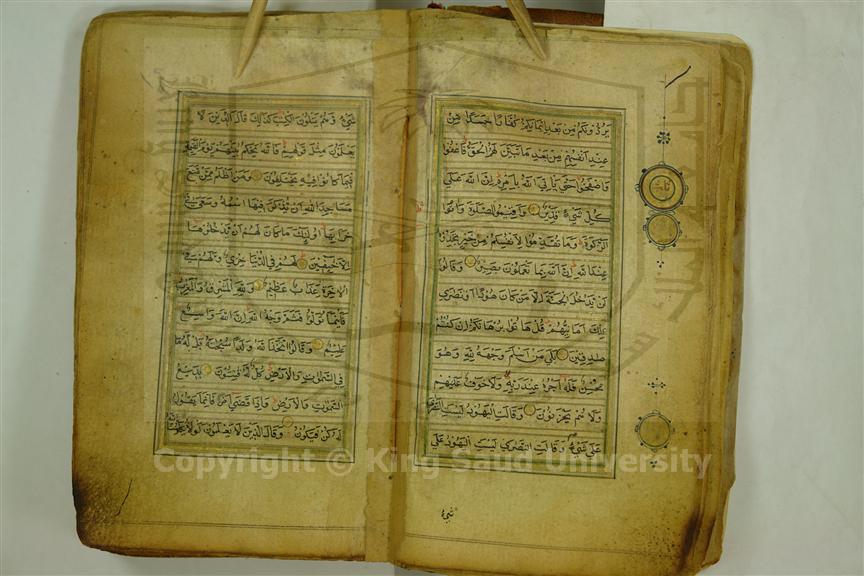 يَرُدُّونَكُمْ مِنْ بَعْدِ اِيمَانِكُمْ كُفَّارًا حَسَدًا مِنْ
عِنْدِ اَنْفُسِهِمْ مِنْ بَعْدِ مَا تَبَيَّنَ لَهُمُ الْحَقُّ فَاعْفُوا
وَاصْفَحُوا حَتّٰى يَاْتِيَ اللّٰهُ بِاَمْرِهِ اِنَّ اللّٰهَ عَلٰى
كُلِّ شَيْءٍ قَدِيرٌ وَاَقِيمُوا الصَّلٰوةَ وَاٰتُوا
الزَّكٰوةَ وَمَا تُقَدِّمُوا لِاَنْفُسِكُمْ مِنْ خَيْرٍ تَجِدُوهُ
عِنْدَ اللّٰهِ اِنَّ اللّٰهَ بِمَا تَعْمَلُونَ بَصِيرٌ وَقَالُوا
لَنْ يَدْخُلَ الْجَنَّةَ اِلَّا مَنْ كَانَ هُودًا اَوْ نَصَارٰى
تِلْكَ اَمَانِيُّهُمْ قُلْ هَاتُوا بُرْهَانَكُمْ اِنْ كُنْتُمْ
صٰدِقِينَ بَلٰى مَنْ اَسْلَمَ وَجْهَهُ لِلّٰهِ وَهُوَ
مُحْسِنٌ فَلَهُ اَجْرُهُ عِنْدَ رَبِّهِ وَلَا خَوْفٌ عَلَيْهِمْ
وَلَا هُمْ يَحْزَنُونَ وَقَالَتِ الْيَهُودُ لَيْسَتِ النَّصٰرٰى
عَلٰى شَيْءٍ وَقَالَتِ النَّصٰرٰى لَيْسَتِ الْيَهُودُ عَلٰى
شَيْءٍ
شَيْءٍ وَهُمْ يَتْلُونَ الْكِتٰبَ كَذٰلِكَ قَالَ الَّذِينَ لَا
يَعْلَمُونَ مِثْلَ قَوْلِهِمْ فَاللّٰهُ يَحْكُمُ بَيْنَهُمْ يَوْمَ الْقِيٰمَةِ
فِيمَا كَانُوا فِيهِ يَخْتَلِفُونَ وَمَنْ اَظْلَمُ مِمَّنْ مَنَعَ
مَسَاجِدَ اللّٰهِ اَنْ يُذْكَرَ فِيهَا اسْمُهُ وَسَعٰى فِي
خَرَابِهَا اُولٰئِكَ مَا كَانَ لَهُمْ اَنْ يَدْخُلُوهَا
اِلَّا خَائِفِينَ لَهُمْ فِي الدُّنْيَا خِزْيٌ وَلَهُمْ فِي
الْاٰخِرَةِ عَذَابٌ عَظِيمٌ وَلِلّٰهِ الْمَشْرِقُ وَالْمَغْرِبُ
فَاَيْنَمَا تُوَلُّوا فَثَمَّ وَجْهُ اللّٰهِ اِنَّ اللّٰهَ وَاسِعٌ
عَلِيمٌ وَقَالُوا اتَّخَذَ اللّٰهُ وَلَدًا سُبْحَانَهُ بَلْ لَهُ مَا
فِي السَّمٰوٰتِ وَالْاَرْضِ كُلٌّ لَهُ قَانِتُونَ بَدِيعُ
السَّمٰوٰتِ وَالْاَرْضِ وَاِذَا قَضٰى اَمْرًا فَاِنَّمَا يَقُولُ
لَهُ كُنْ فَيَكُونُ وَقَالَ الَّذِينَ لَا يَعْلَمُونَ لَوْلَا يُكَلِّمُنَا
Copyright © King Saud University